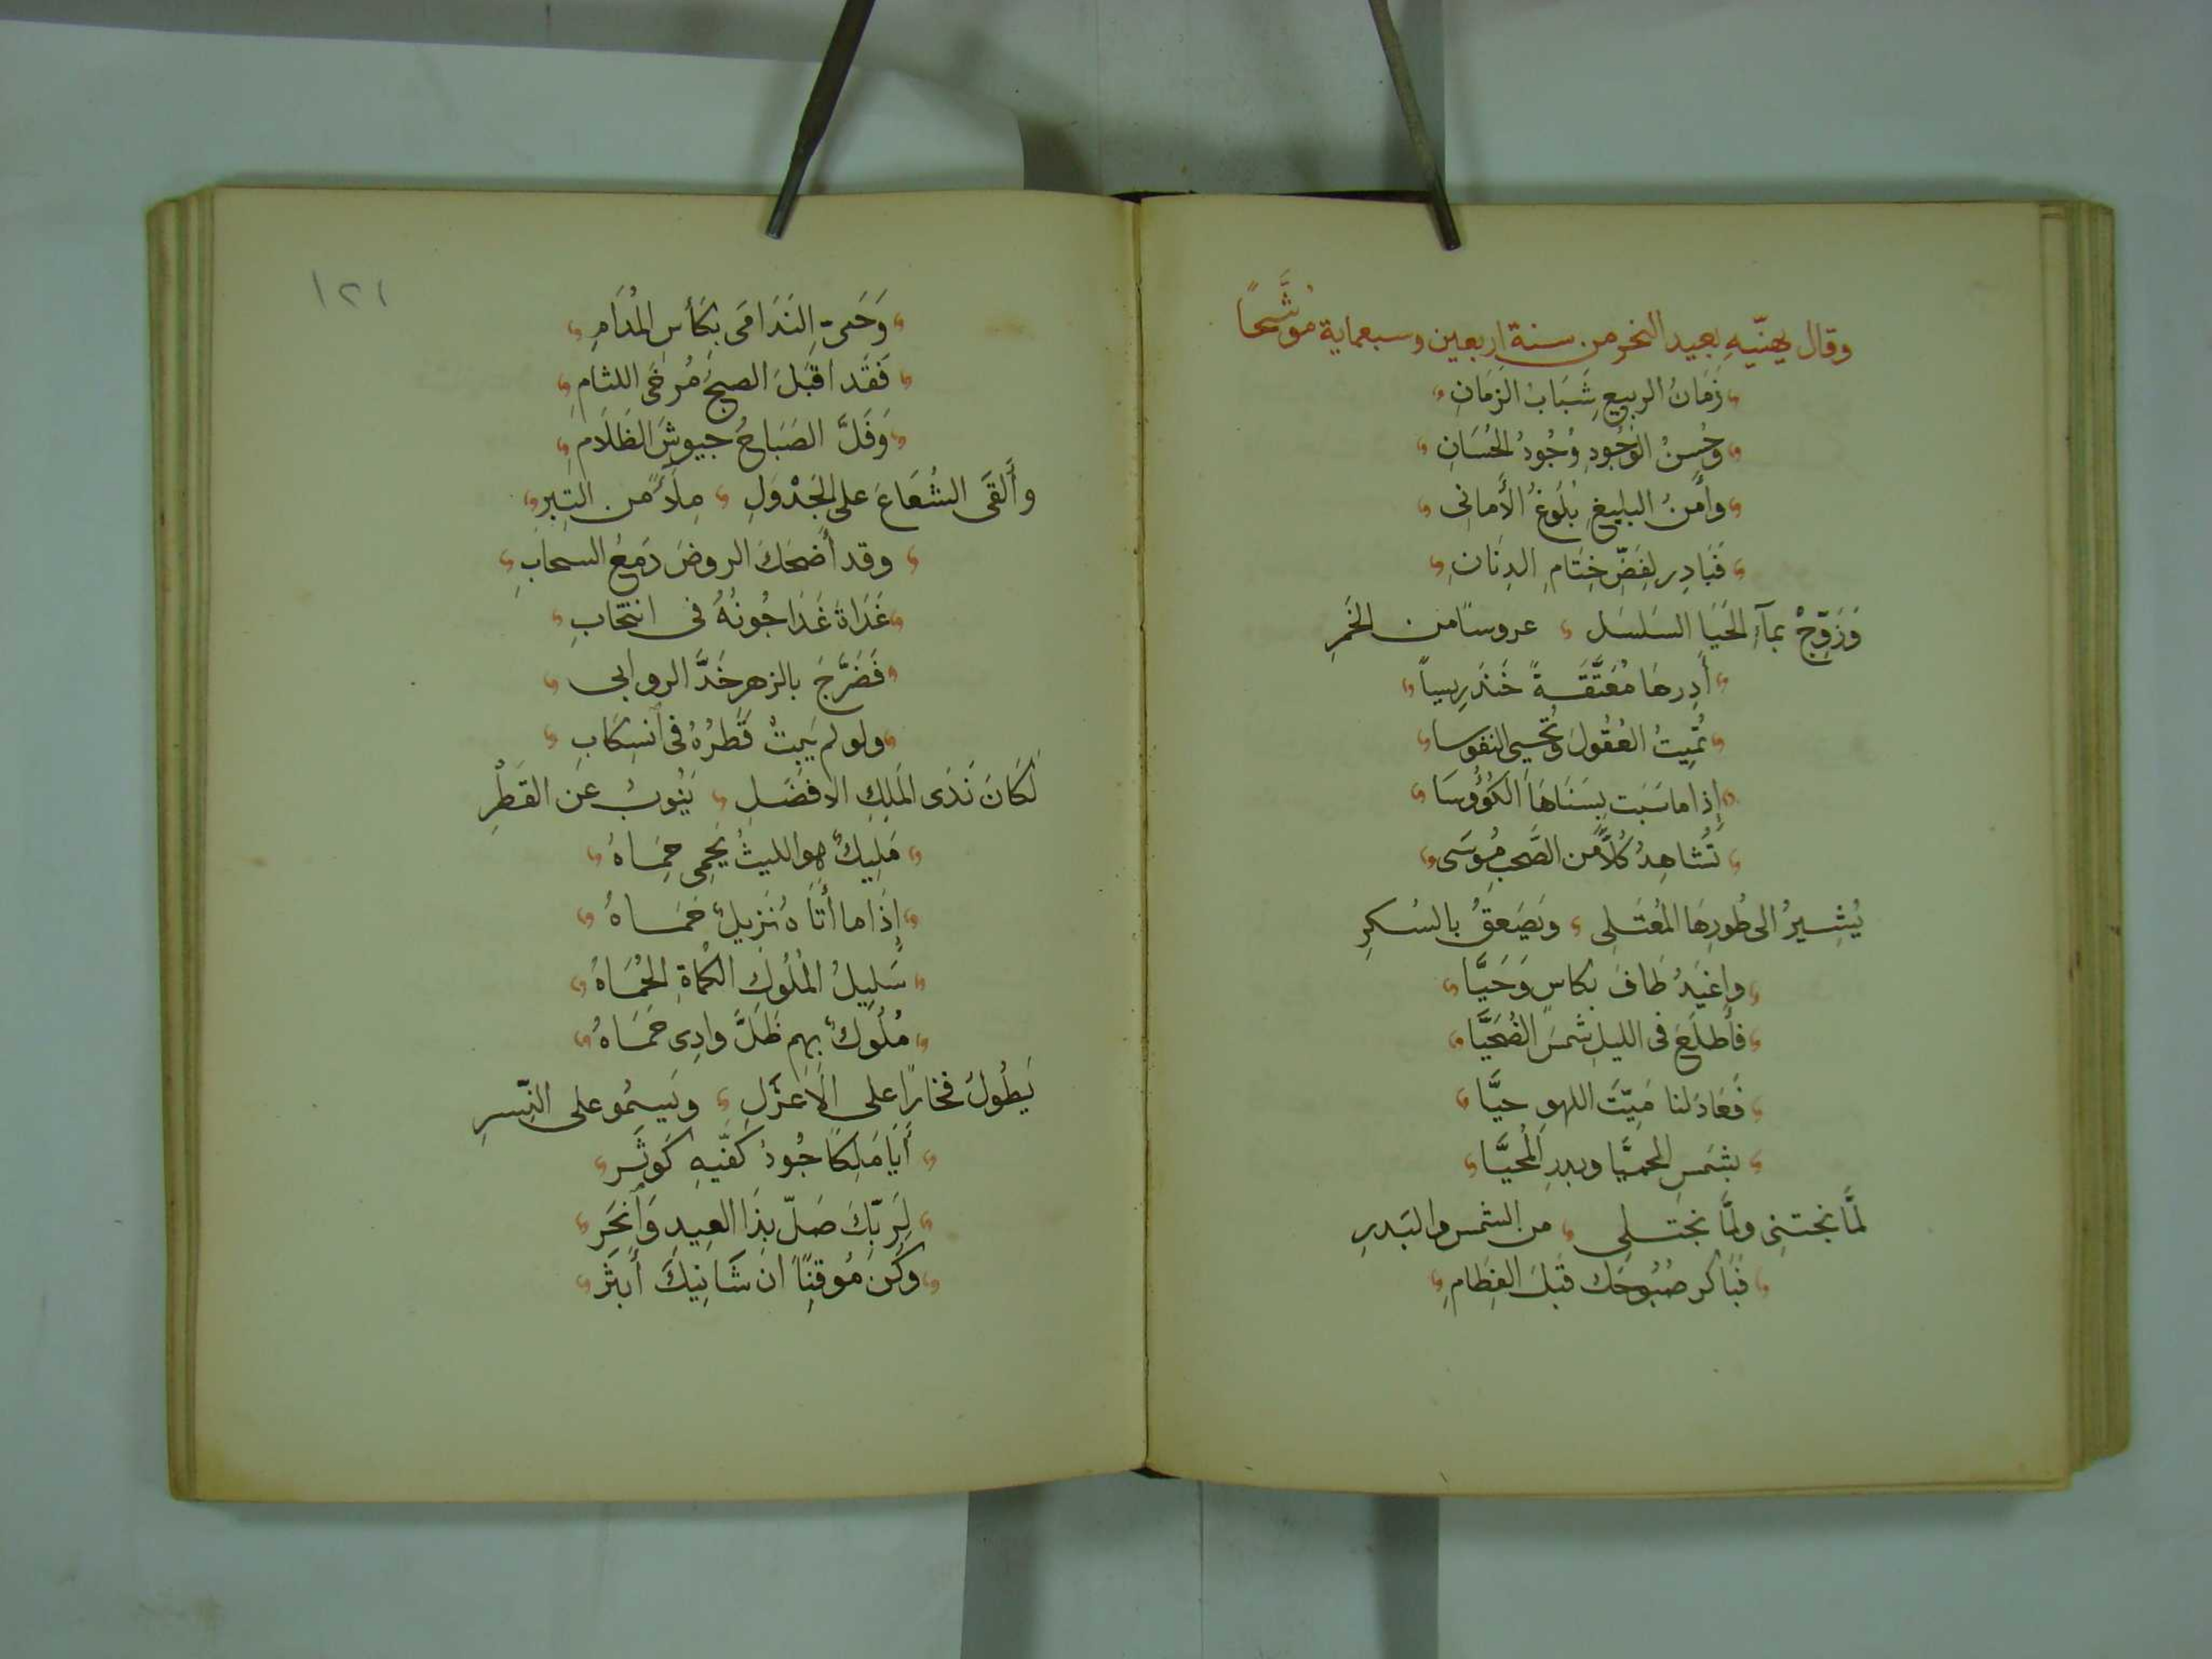 وقال يهنّيهِ بعيد النحر من سنة اربعين وسبعماية مُوَشَّحًا
زَمَانُ الربيعِ شَبَابُ الزمَانِ
وحُسنُ الوُجُودِ وُجُودُ الحُسَانِ
وأَمنُ البليغِ بُلُوغُ الأَمانى
فَبَادِر لِفَضِّ خِتَامِ الدِنَانِ
وَزَوِّجْ بمآءِ الحَيَا السَلسَلِ عروسًا من الخَمرِ
أَدِرهَا مُعَتَّقَةً خَندَرِيساً
تُمِيتُ العُقُولَ وتُحيى النفوسا
إِذا ما سَبَت بِسَنَاهَا الكُؤُوسَا
تُشاهِدُ كُلاًّ من الصَّحبِ مُوسَى
يُشِيرُ الى طُورِهَا المُعتَلِى وَيَصعَقُ بالسُكرِ
واغيَدُ طَافَ بكاسٍ وَحَيَّا
فأَطلَعَ فى الليلِ شَمسَ الضُحَيَّا
فَعَادَ لنا مَيِّتَ اللهوِ حيَّا
بشَمسِ الحميَّا وبدرِ المُحيَّا
لمَّا نجتنِى ولمَّا نجتلِى من الشمس والبَدرِ
فبَاكر صُبُوحَك قَبلَ الفِطَامِ
١٢١
وَحَىِّ النَدَامَى بكَأسِ المُدَامِ
فَقَد اقبَلَ الصبحُ مُرخَى اللثامِ
وَفَلَّ الصَبَاحُ جيوشَ الظَلَامِ
وأَلقَى الشُعَاعَ على الجَدْوَلِ مِلَأً من التِبرِ
وقد أَضحَكَ الروضَ دَمعُ السحابِ
غَدَاةَ غَدَا جُونُهُ فى انتحَابِ
فَضَرَّجَ بالزهرِ خَدَّ الروابى
ولو لم يَبِتْ قَطرُهُ فى آنسِكَابِ
لَكَانَ نَدَى المَلِكِ الافضَلِ يَنُوبُ عَن القَطْرِ
مَلِيكٌ هو الليثُ يَحمِى حِمَاهُ
إِذَا ما أَتَاهُ نَزِيلٌ حَمَاهُ
سَلِيلُ المُلُوكِ الكُمَاةِ الحُمَاهُ
مُلُوكٌ بِهِم ظَلَّ وادِى حَمَاهُ
يَطُولُ فخارًا على الاعزَلِ وَيَسمُو على النِّسرِ
أَيَا مَلِكًا جُودُ كَفَّيهِ كَوثَر
لِرَبِّكَ صَلِّ بِذَا العِيدِ وَآنحَر
وكُن مُوقِنًا ان شَانِيكَ أَبتَر